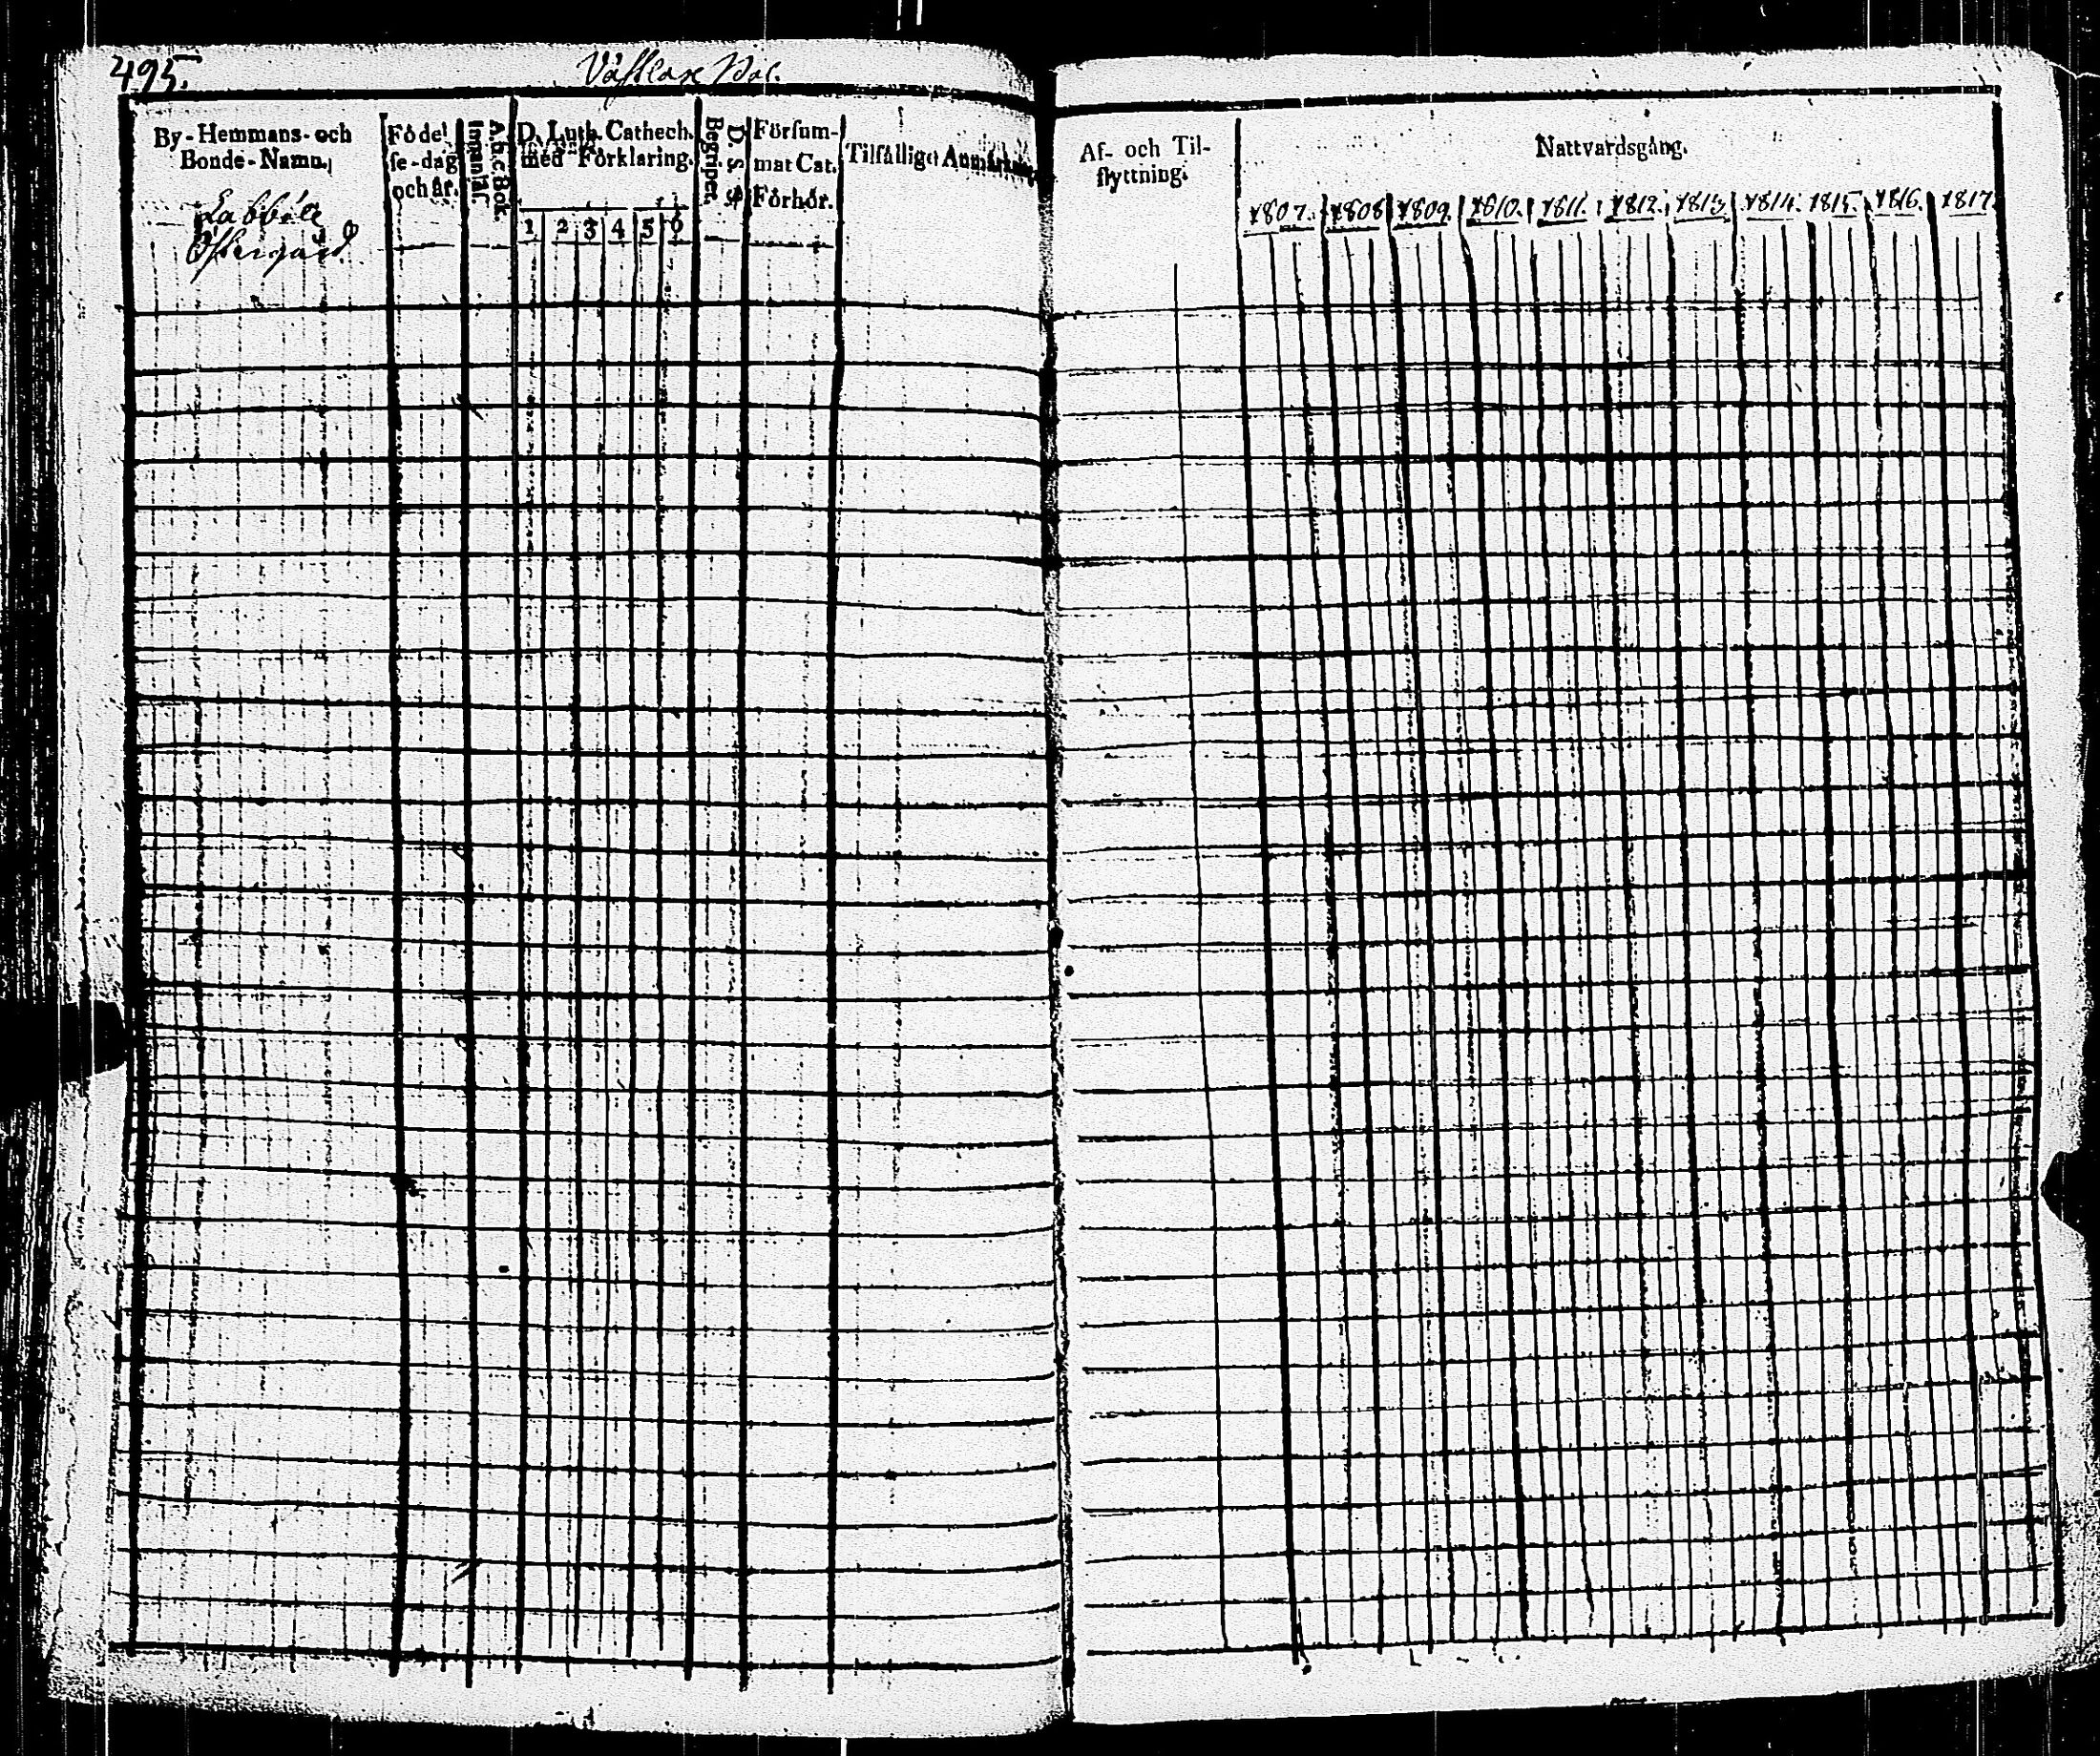 495.
By-Hemmans- och
Bonde-Namn.
Labböle
Östergård
Födel
se-dag
och år.
A.b.c Bok
Innantil.
D. Luth. Cathech.
med Förklaring.
1 2 3 4 5 6
Begriper
D. S. S.
Försum-
mat Cat.
Förhör.
Tilfällige Anmärkn
Af- och Til-
flyttning.
Nattvardsgång.
1807. 1808 1809. 1810. 1811. 1812. 1813 1814. 1815. 1816. 1817.